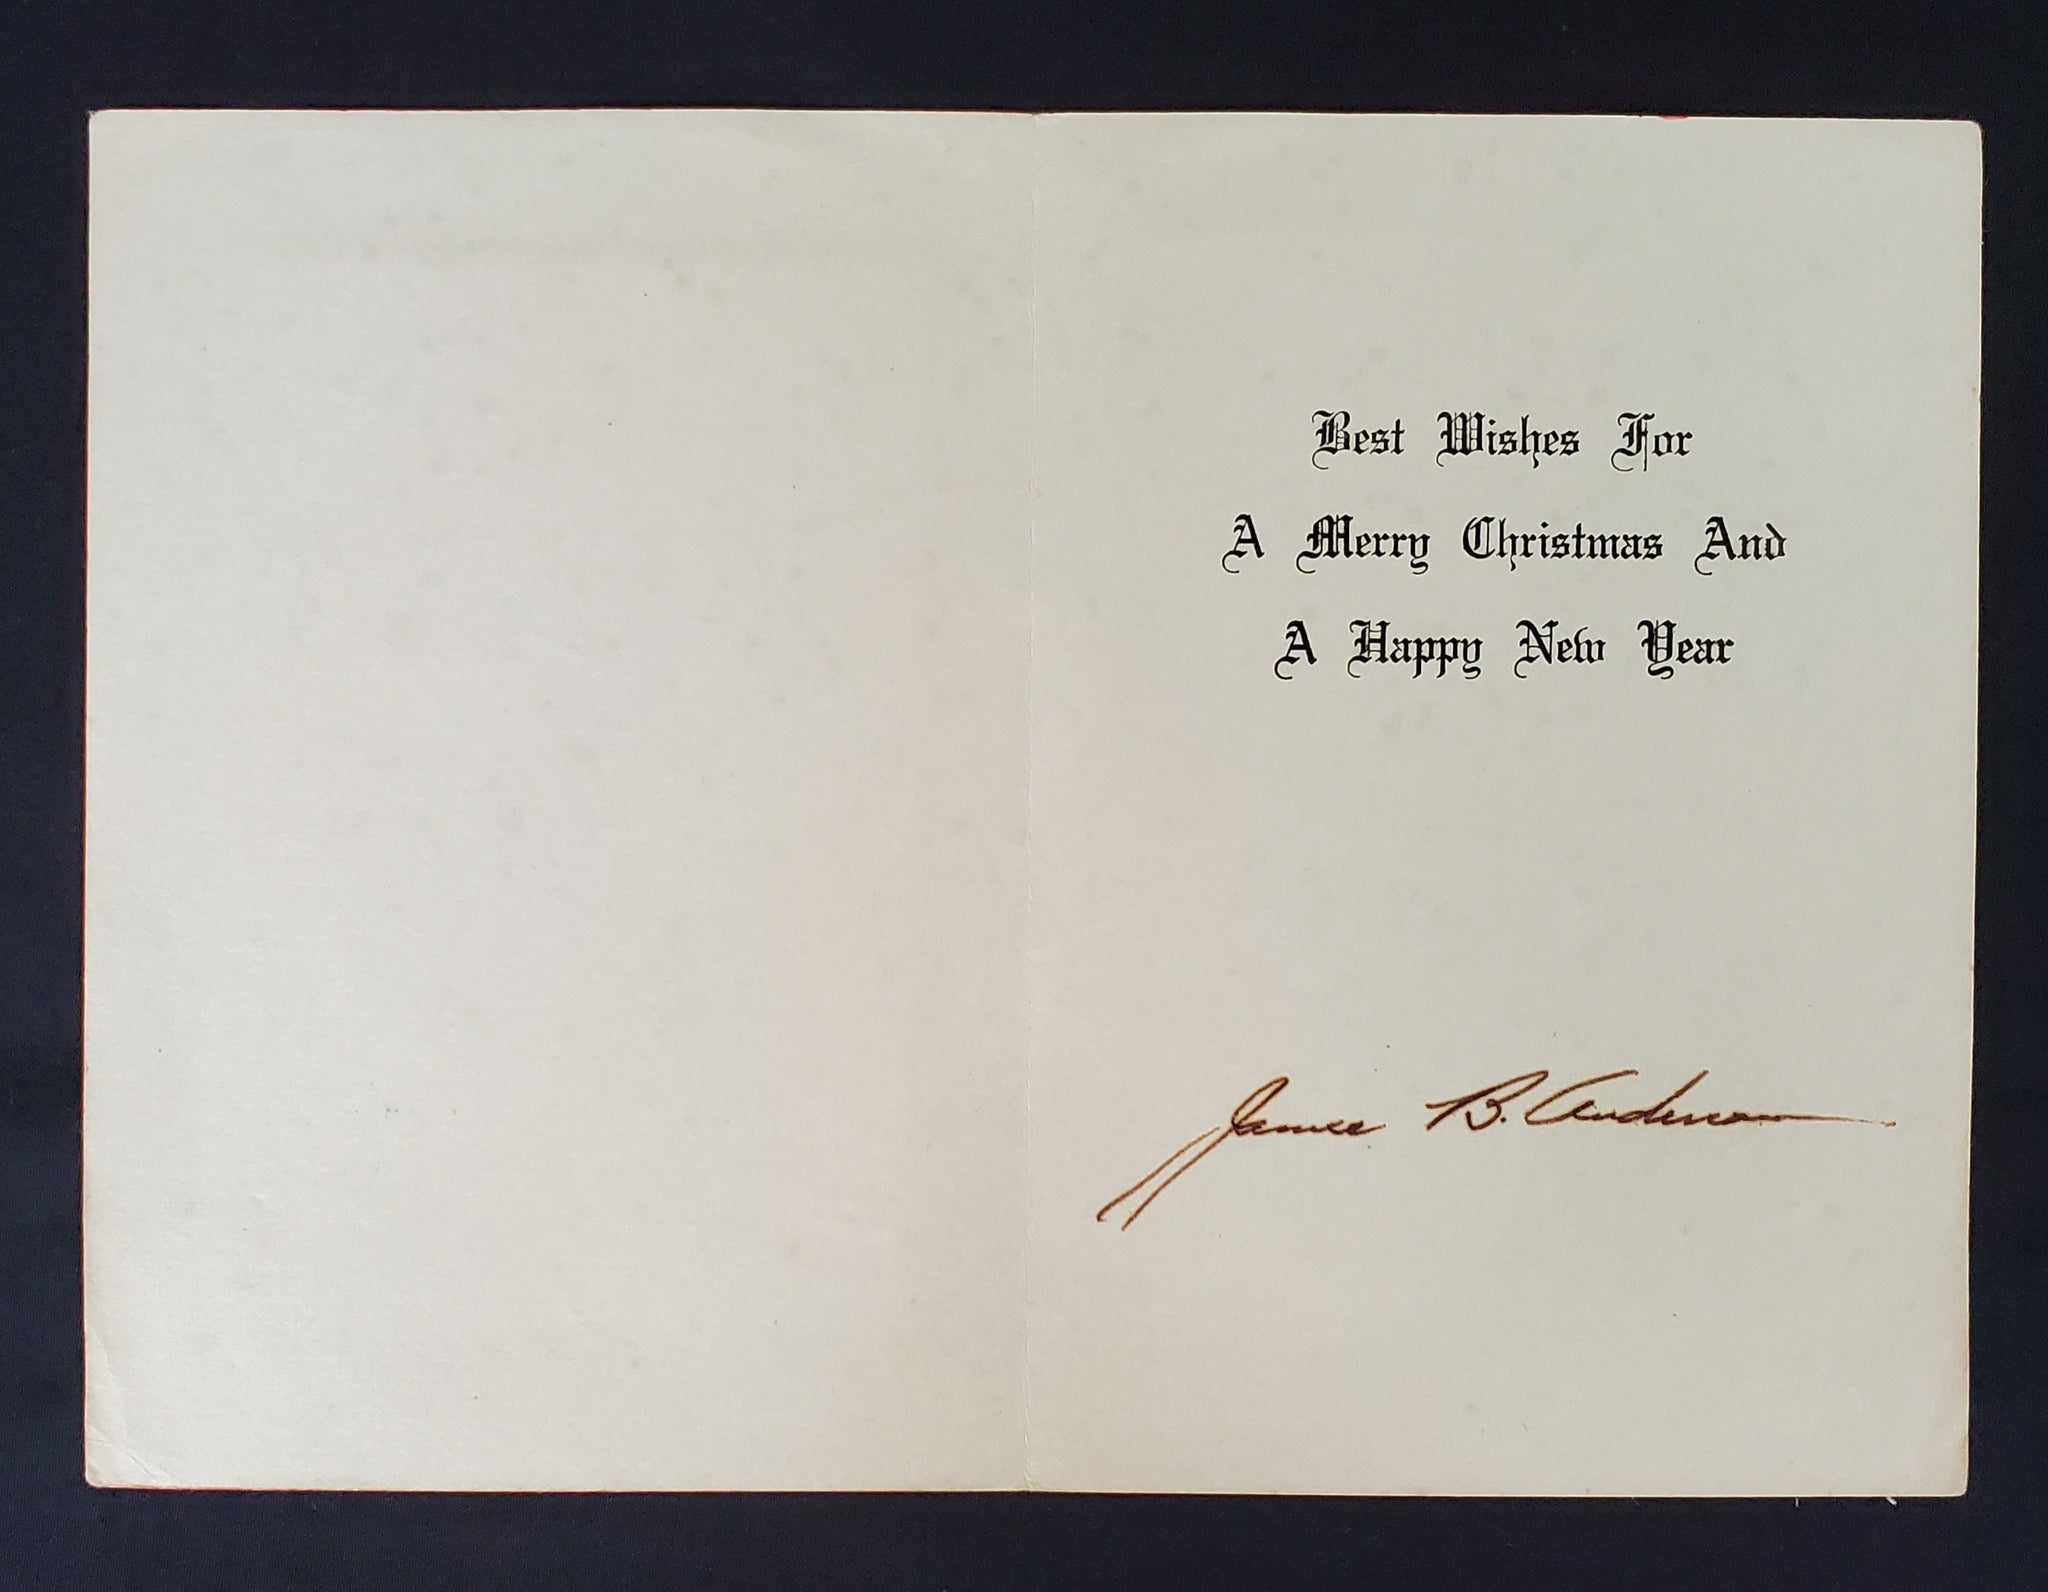 Best Wishes For
A Merry Christmas And
A Happy New Year
B. Anderson